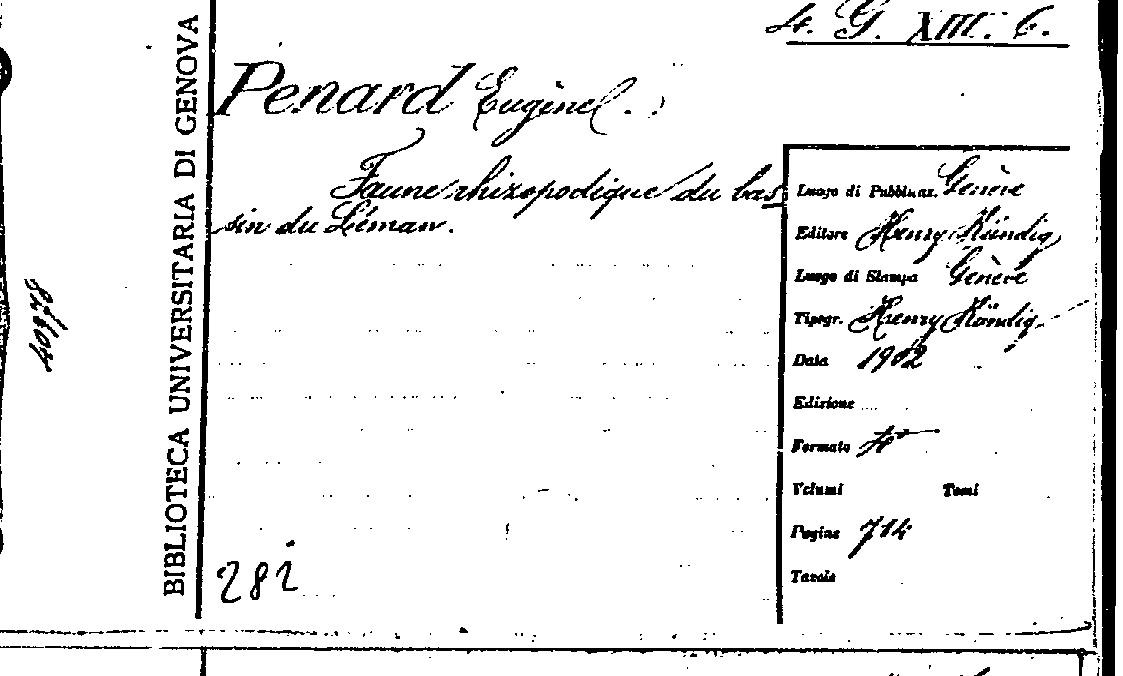 4. G. XIII. 6.
BIBLIOTECA UNIVERSITARIA DI GENOVA
Penard Eugène
Faune rhizopodique du bas-
sin du Léman.
282
Luogo di Pubblicaz. Genève
Editore Henry Kündig
Luogo di Stampa Genève
Tipogr. Henry Kündig
Data 1902
Edizione
Formato 4°
Volumi Tomi
Pagine 714
Tavole